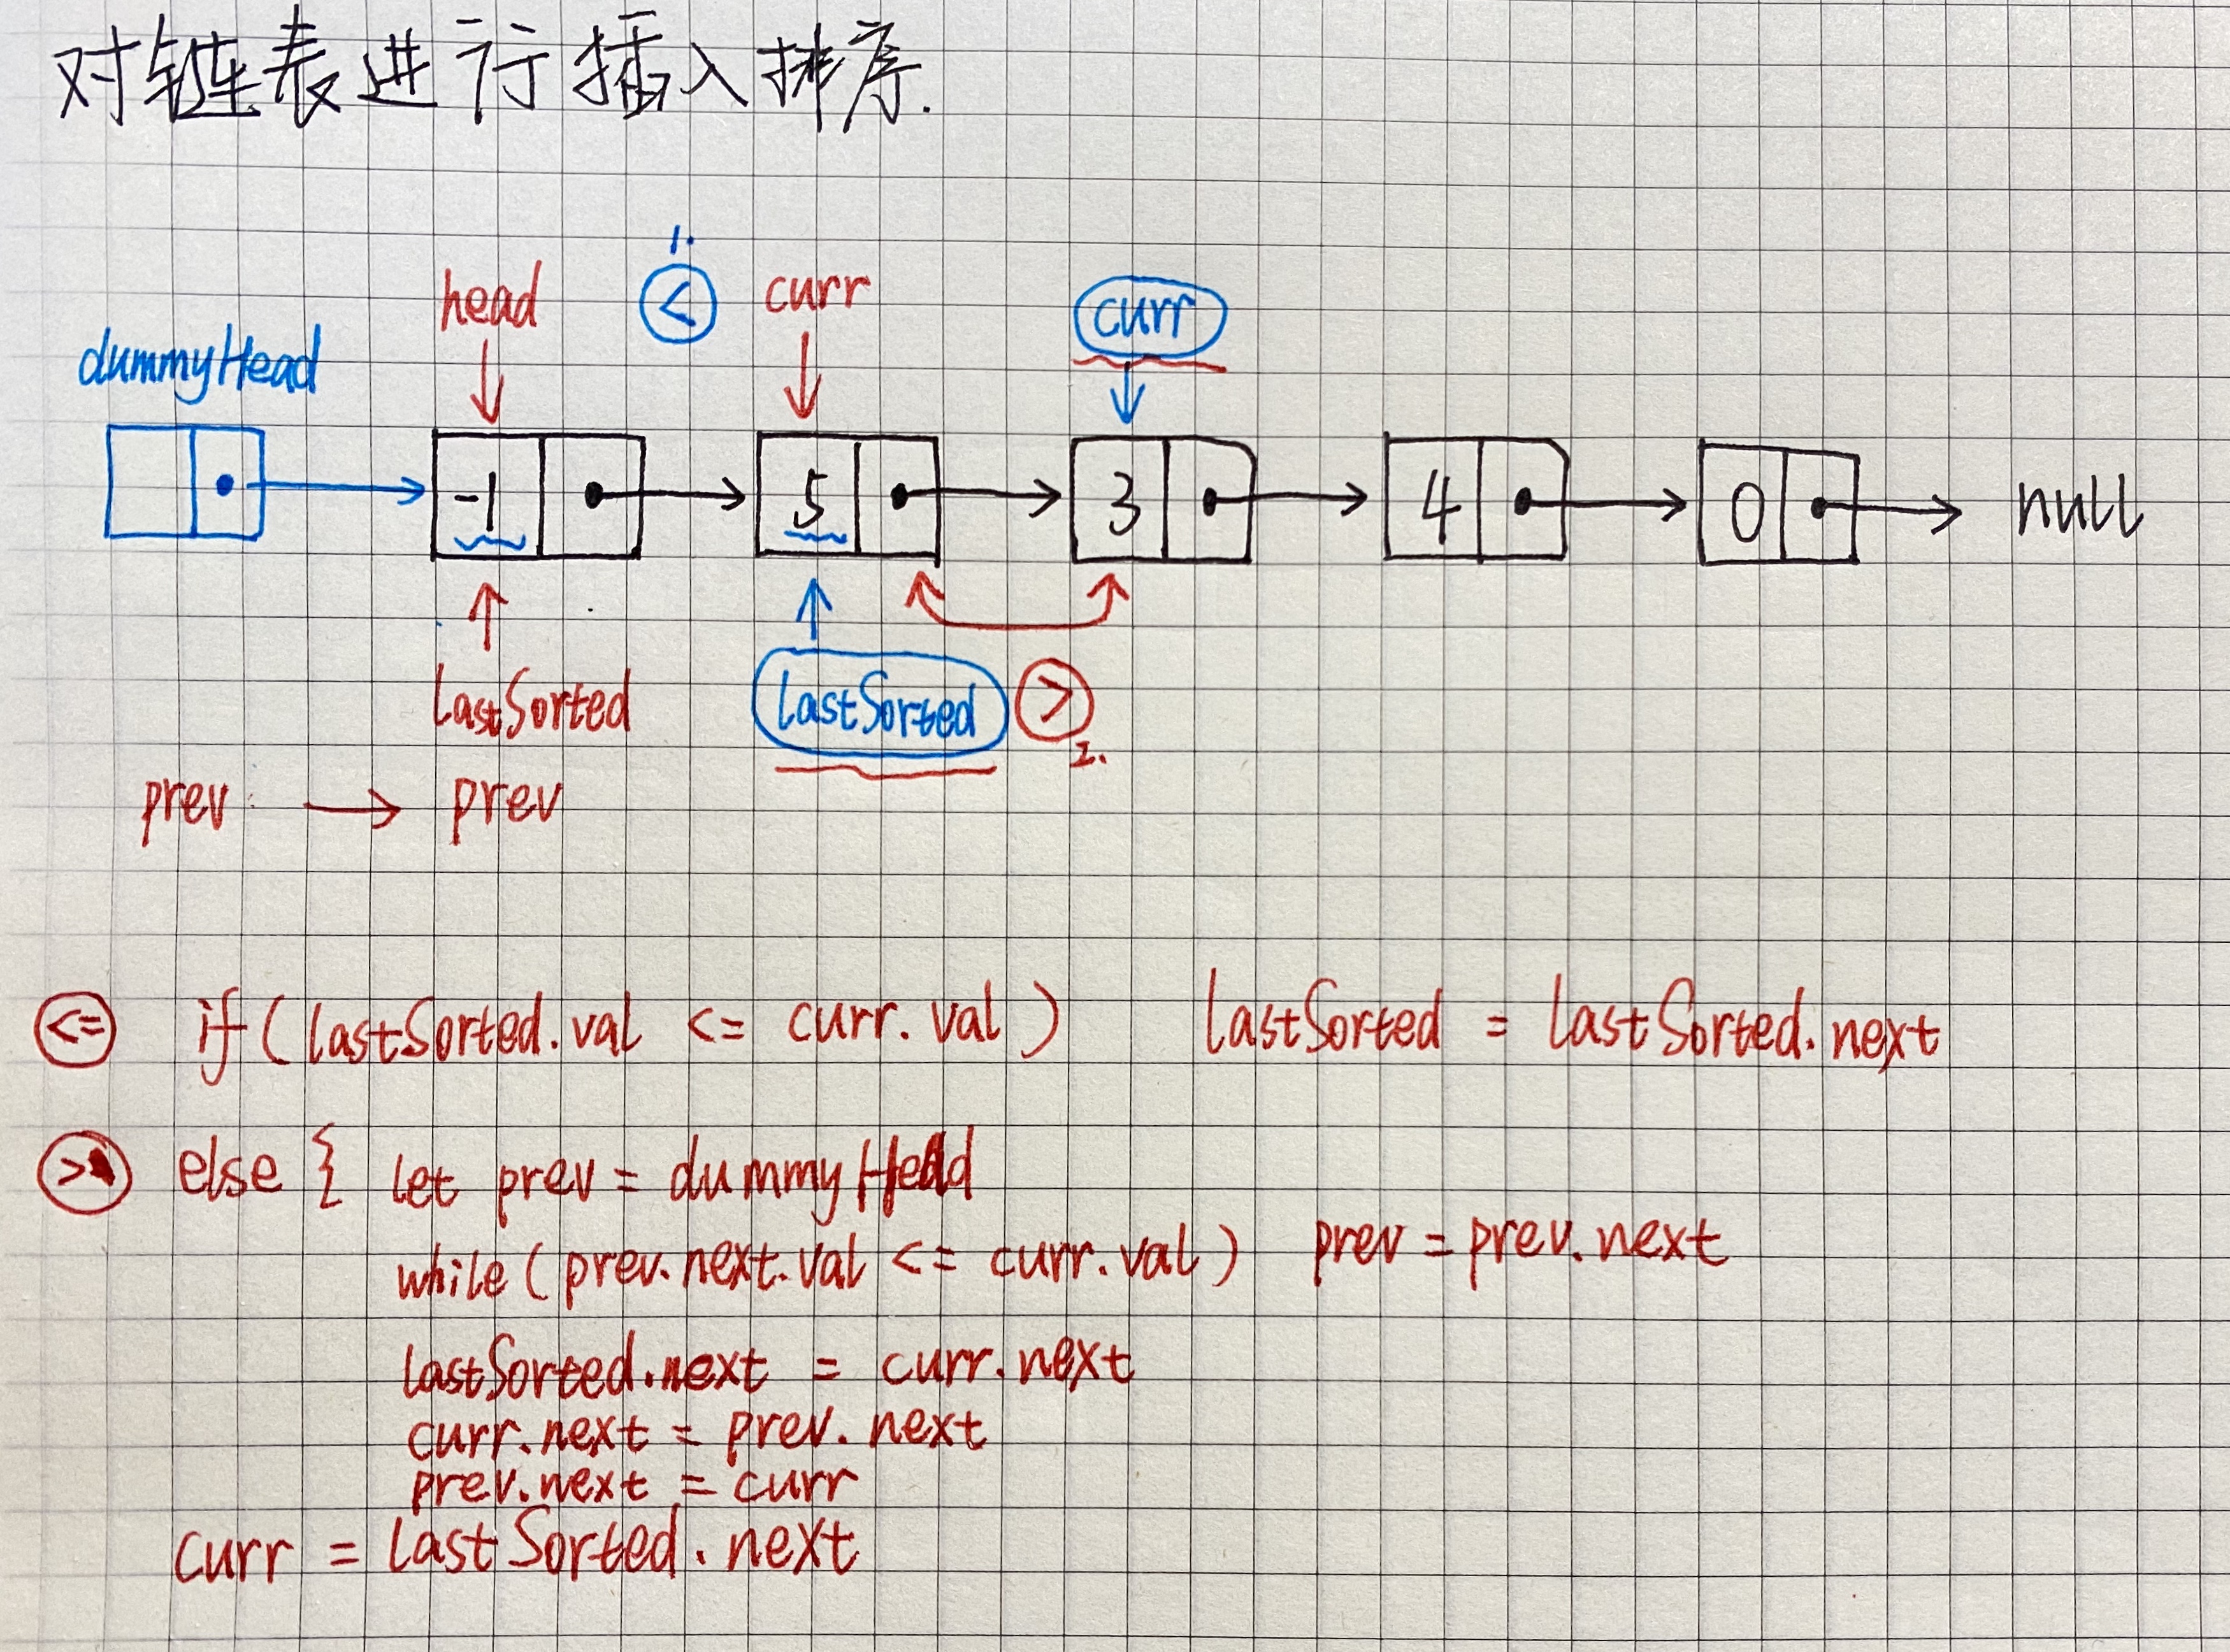 对链表进行插入排序.
1.
head < curr curr
dummyHead
-1 5 3 4 0 null
lastSorted lastSorted >
2.
prev → prev
<= if ( lastSorted.val <= curr.val ) lastSorted = lastSorted.next
> else { let prev = dummyHead
while ( prev.next.val <= curr.val ) prev = prev.next
lastSorted.next = curr.next
curr.next = prev.next
prev.next = curr
curr = lastSorted.next